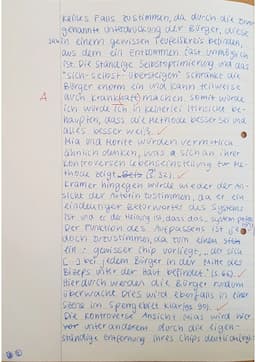 keines Falls zustimmen, da durch die zuvor
genannte Unterdrückung der Bürger, diese
sich in einem gewissen Teufelskreis befinden,
aus dem ein Entkommen fast unmöglich
ist. Die ständige Selbstoptimierung und das
"sich-selbst-übersteigen" schränkt die
Bürger enorm ein und kann teilweise
A durch krank(haft) machen, somit würde
ich würde ich in keinerlei Hinsicht be-
haupten, dass die Methode besser sei und
alles besser weiß.
Mia und Moritz würden vermutlich
ähnlich denken, was sich an ihrer
kontroversen Lebenseinstellung zur Me-
thode zeigt (S. 32).
Kramer hingegen würde wieder der An-
sicht der Autorin zustimmen, da er ein
eindeutiger Befürworter des Systems
ist und er der Meinung ist, dass das System
Der Funktion des Aufpassens ist je-
doch zuzustimmen, da zum einen
ein gewisser Chip vorliegt, „der sich
[...] bei jedem Bürger in der Mitte des
Bizeps unter der Haut befindet" (S. 66).
Hierdurch werden die Bürger rundum
überwacht. Dies wird ebenfalls in einer
Szene im Sperrgebiet klar (S. 90).
Die kontroverse Ansicht Mias wird hier
vor unter anderem durch die eigen-
ständige Entfernung ihres Chips deutlich